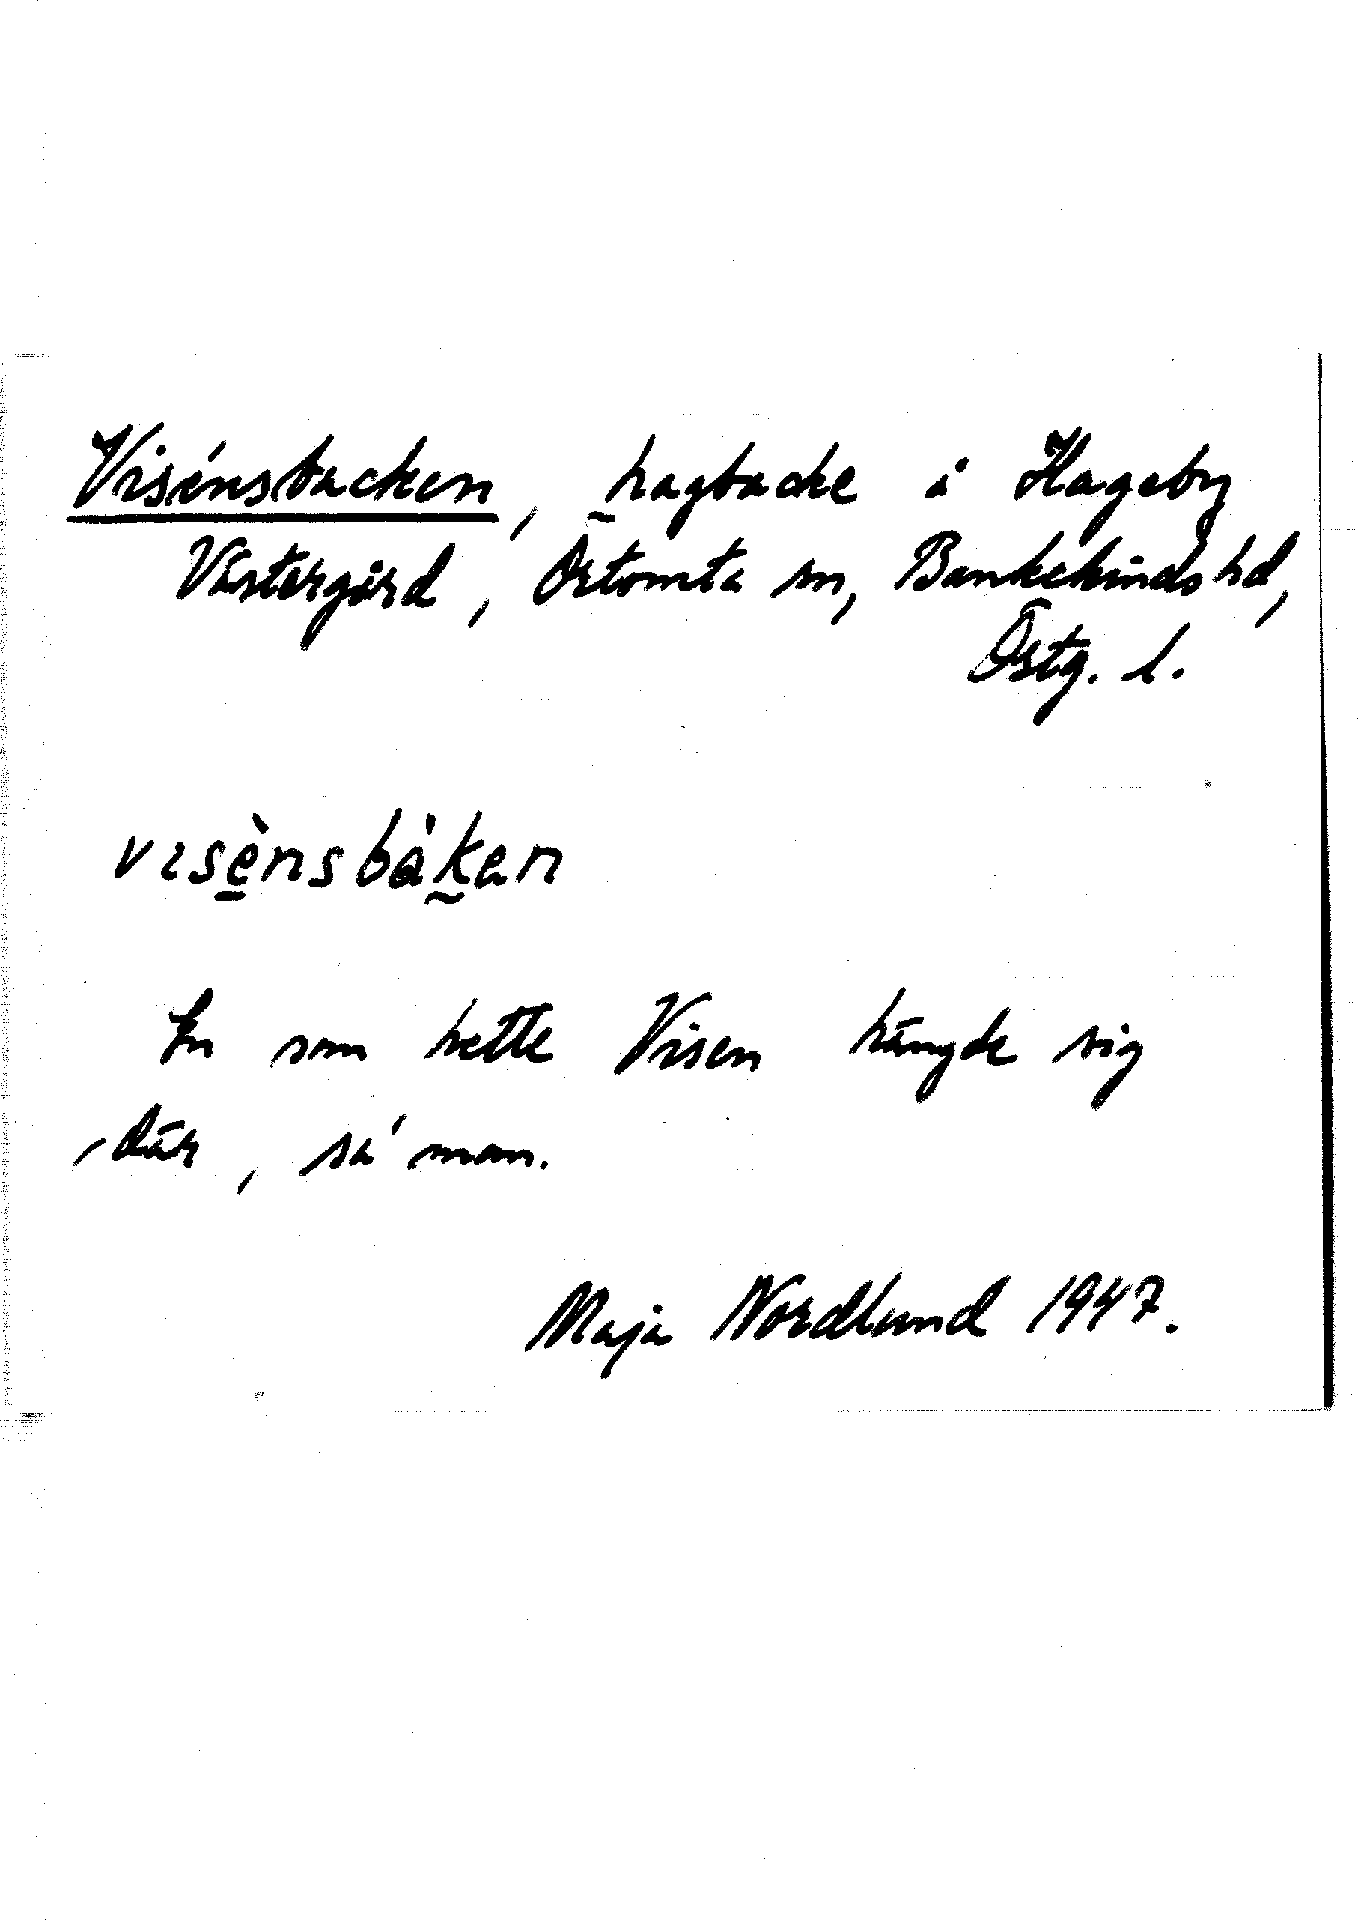 Visénsbacken, hagbacke å Hageby
Västergård, Örtomta sn, Bankekinds hd,
Östg. l.
visènsbàken
En som hette Visen hängde sig
där, sa' man.
Maja Nordlund 1947.